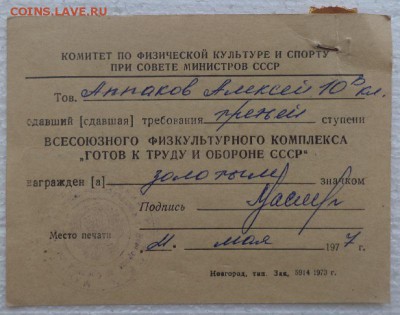 COINS.LAVE.RU
КОМИТЕТ ПО ФИЗИЧЕСКОЙ КУЛЬТУРЕ И СПОРТУ
ПРИ СОВЕТЕ МИНИСТРОВ СССР
Тов. Аппаков Алексей 10 В кл.
сдавший [сдавшая] требования третьей ступени
ВСЕСОЮЗНОГО ФИЗКУЛЬТУРНОГО КОМПЛЕКСА
„ГОТОВ К ТРУДУ И ОБОРОНЕ СССР"
награжден [а] золотым значком
Подпись
Место печати мая 1977 г.
Новгород, тип. Зак. 5914 1973 г.